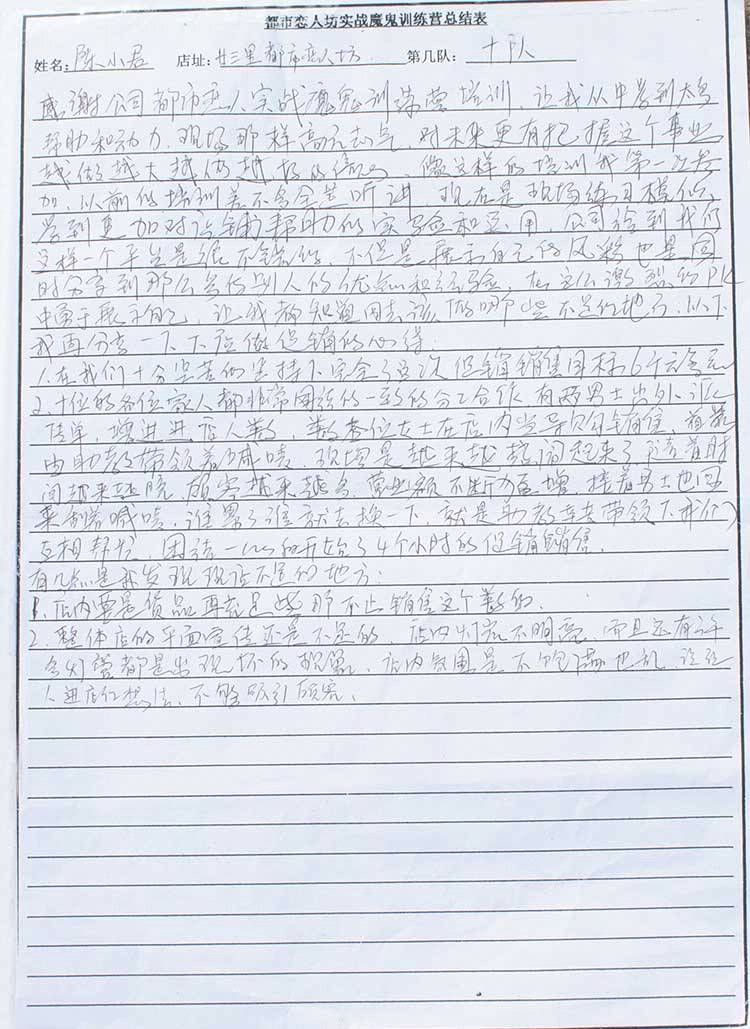 都市恋人坊实战魔鬼训练营总结表
姓名：陈小君 店址：廿三里都市恋人坊 第几队：十队
感谢公司都市恋人实战魔鬼训练营培训，让我从中学到太多
帮助和动力，现场那样高元志气，对未来更有把握这个事业
越做越大越做越好的信心，像这样的培训我第一次参
加，以前的培训差不多全是听讲，现在是现场练习模仿，
学到更加对店铺帮助的实验和运用，公司给到我们
这样一个平台是很不错的，不但是展示自己的风彩也是同
时分享到那么多的别人的优点和经验，在这么激烈的PK
中勇于展示自己，让我都知道回去该做哪些不足的地方，以下
我再分享一下下店做促销的心得：
1.在我们十分坚苦的坚持下完全了这次促销销售目标6千元多元
2.十位的各位家人都非常团结的一致的分工合作，有两男士出外派
传单，增进进店人数，数各位女士在店内当导购销售，首最
由助教带领着喊唛，现场是越来越热闹起来了，随着时
间越来越晚，顾客越来越多，营业额不断力猛增，接着男士也回
来制着喊唛，谁累了谁就去换一下，就是助教 带领下我们
互相帮忙，团结一心和开始了4个小时的促销销售。
有几点是我发现现设不足的地方：
1.店内要是货品再充足些那不止销售这个数的.
2.整体店的平面宣传还是不足的，店内灯光不明亮，而且还有许
多灯管都是出现坏的现象，店内氛围是不饱满也乱，没让
人进店的想法，不够吸引顾客、